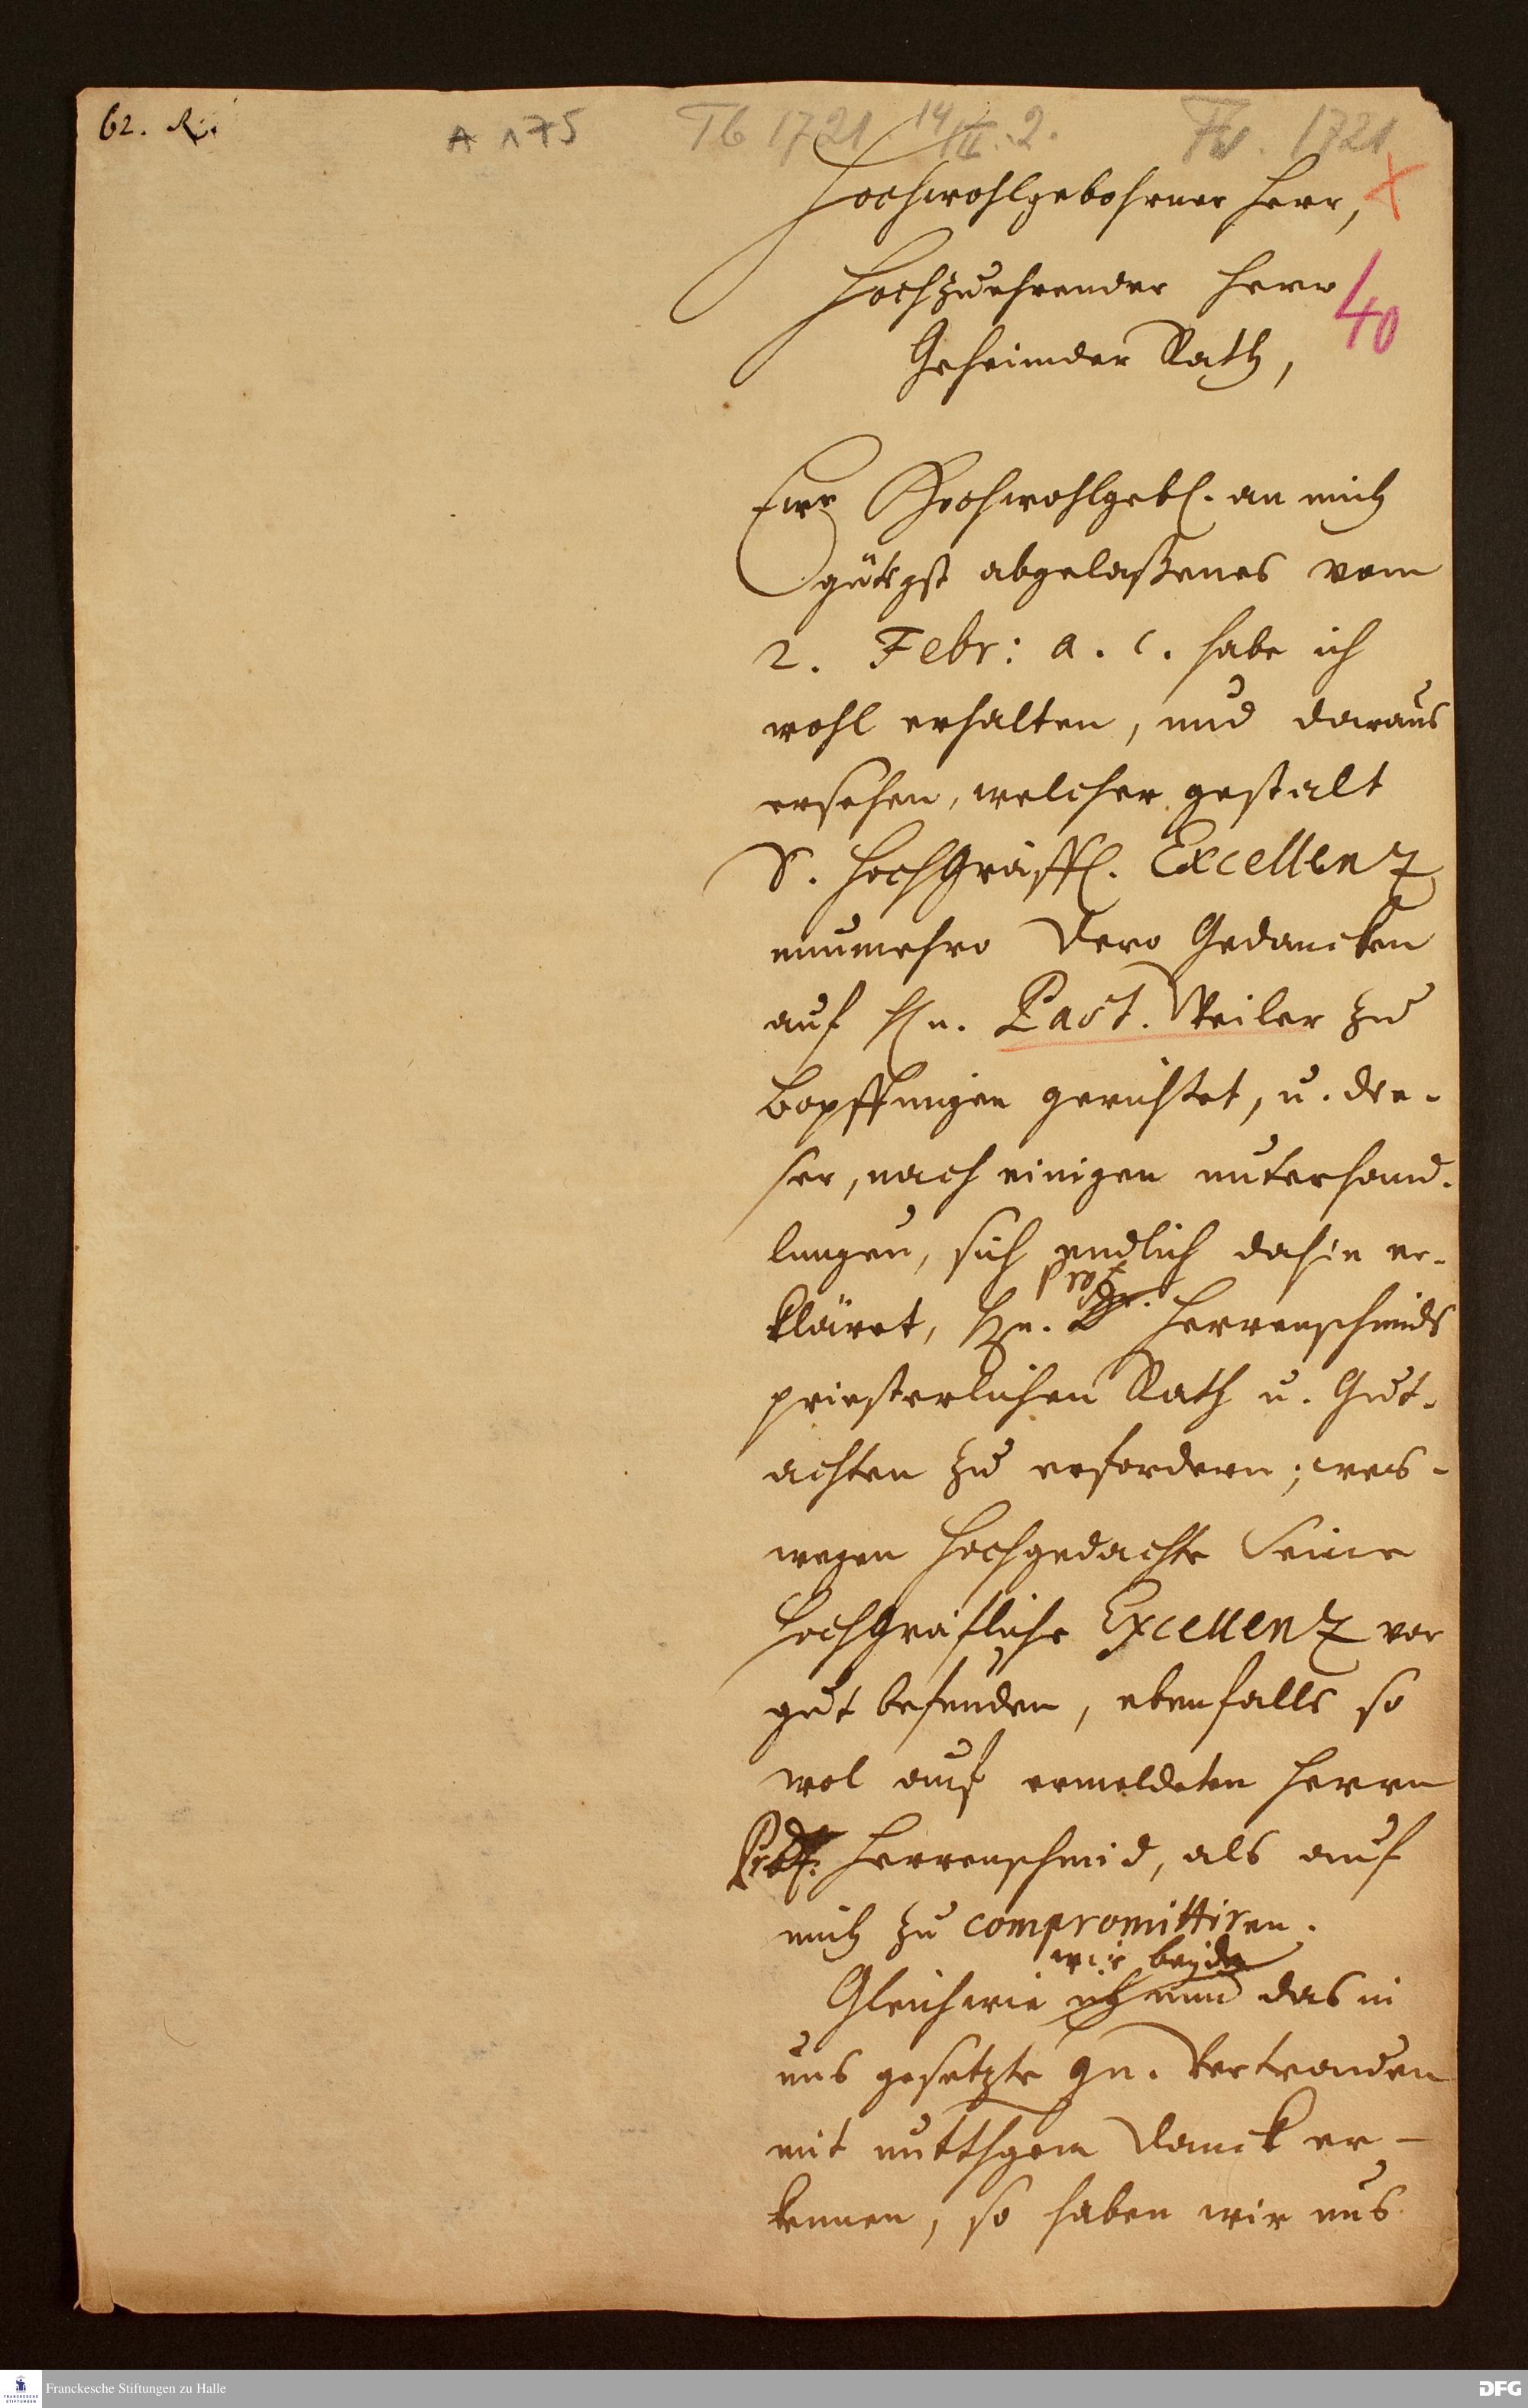 62.
A 175
Tb 1721 14/II. 2.
Fr. 1721
Hochwohlgebohrner Herr,
40
Hochzuehrender Herr
Geheimder Rath,
Ewr Hochwohlgebl. an mich
gütigst abgelaßenes vom
2. Febr: a. c. habe ich
wohl erhalten, und daraus
ersehen, welcher gestalt
S. HochGräffl. Excellenz
nunmehro Dero Gedancken
auf Hn. Past. Weiler zu
Bopffingen gerichtet, u. die-
ser, nach einigen unterhand-
lungen, sich endlich dahin er-
Prof.
kläret, Hn. Herrenschmids
priesterlichen Rath u. Gut-
achten zu erfordern; wes-
wegen Hochgedachte Seine
HochGräfliche Excellenz vor
gut befunden, ebenfalls so
wol auf ermeldeten Herrn
Prof. Herrenschmid, als auf
mich zu compromittiren.
wir beyde
Gleichwie ich nun das in
uns gesetzte gn. Vertrauen
mit unterthgem Danck er-
kennen, so haben wir uns
Franckesche Stiftungen zu Halle
DFG